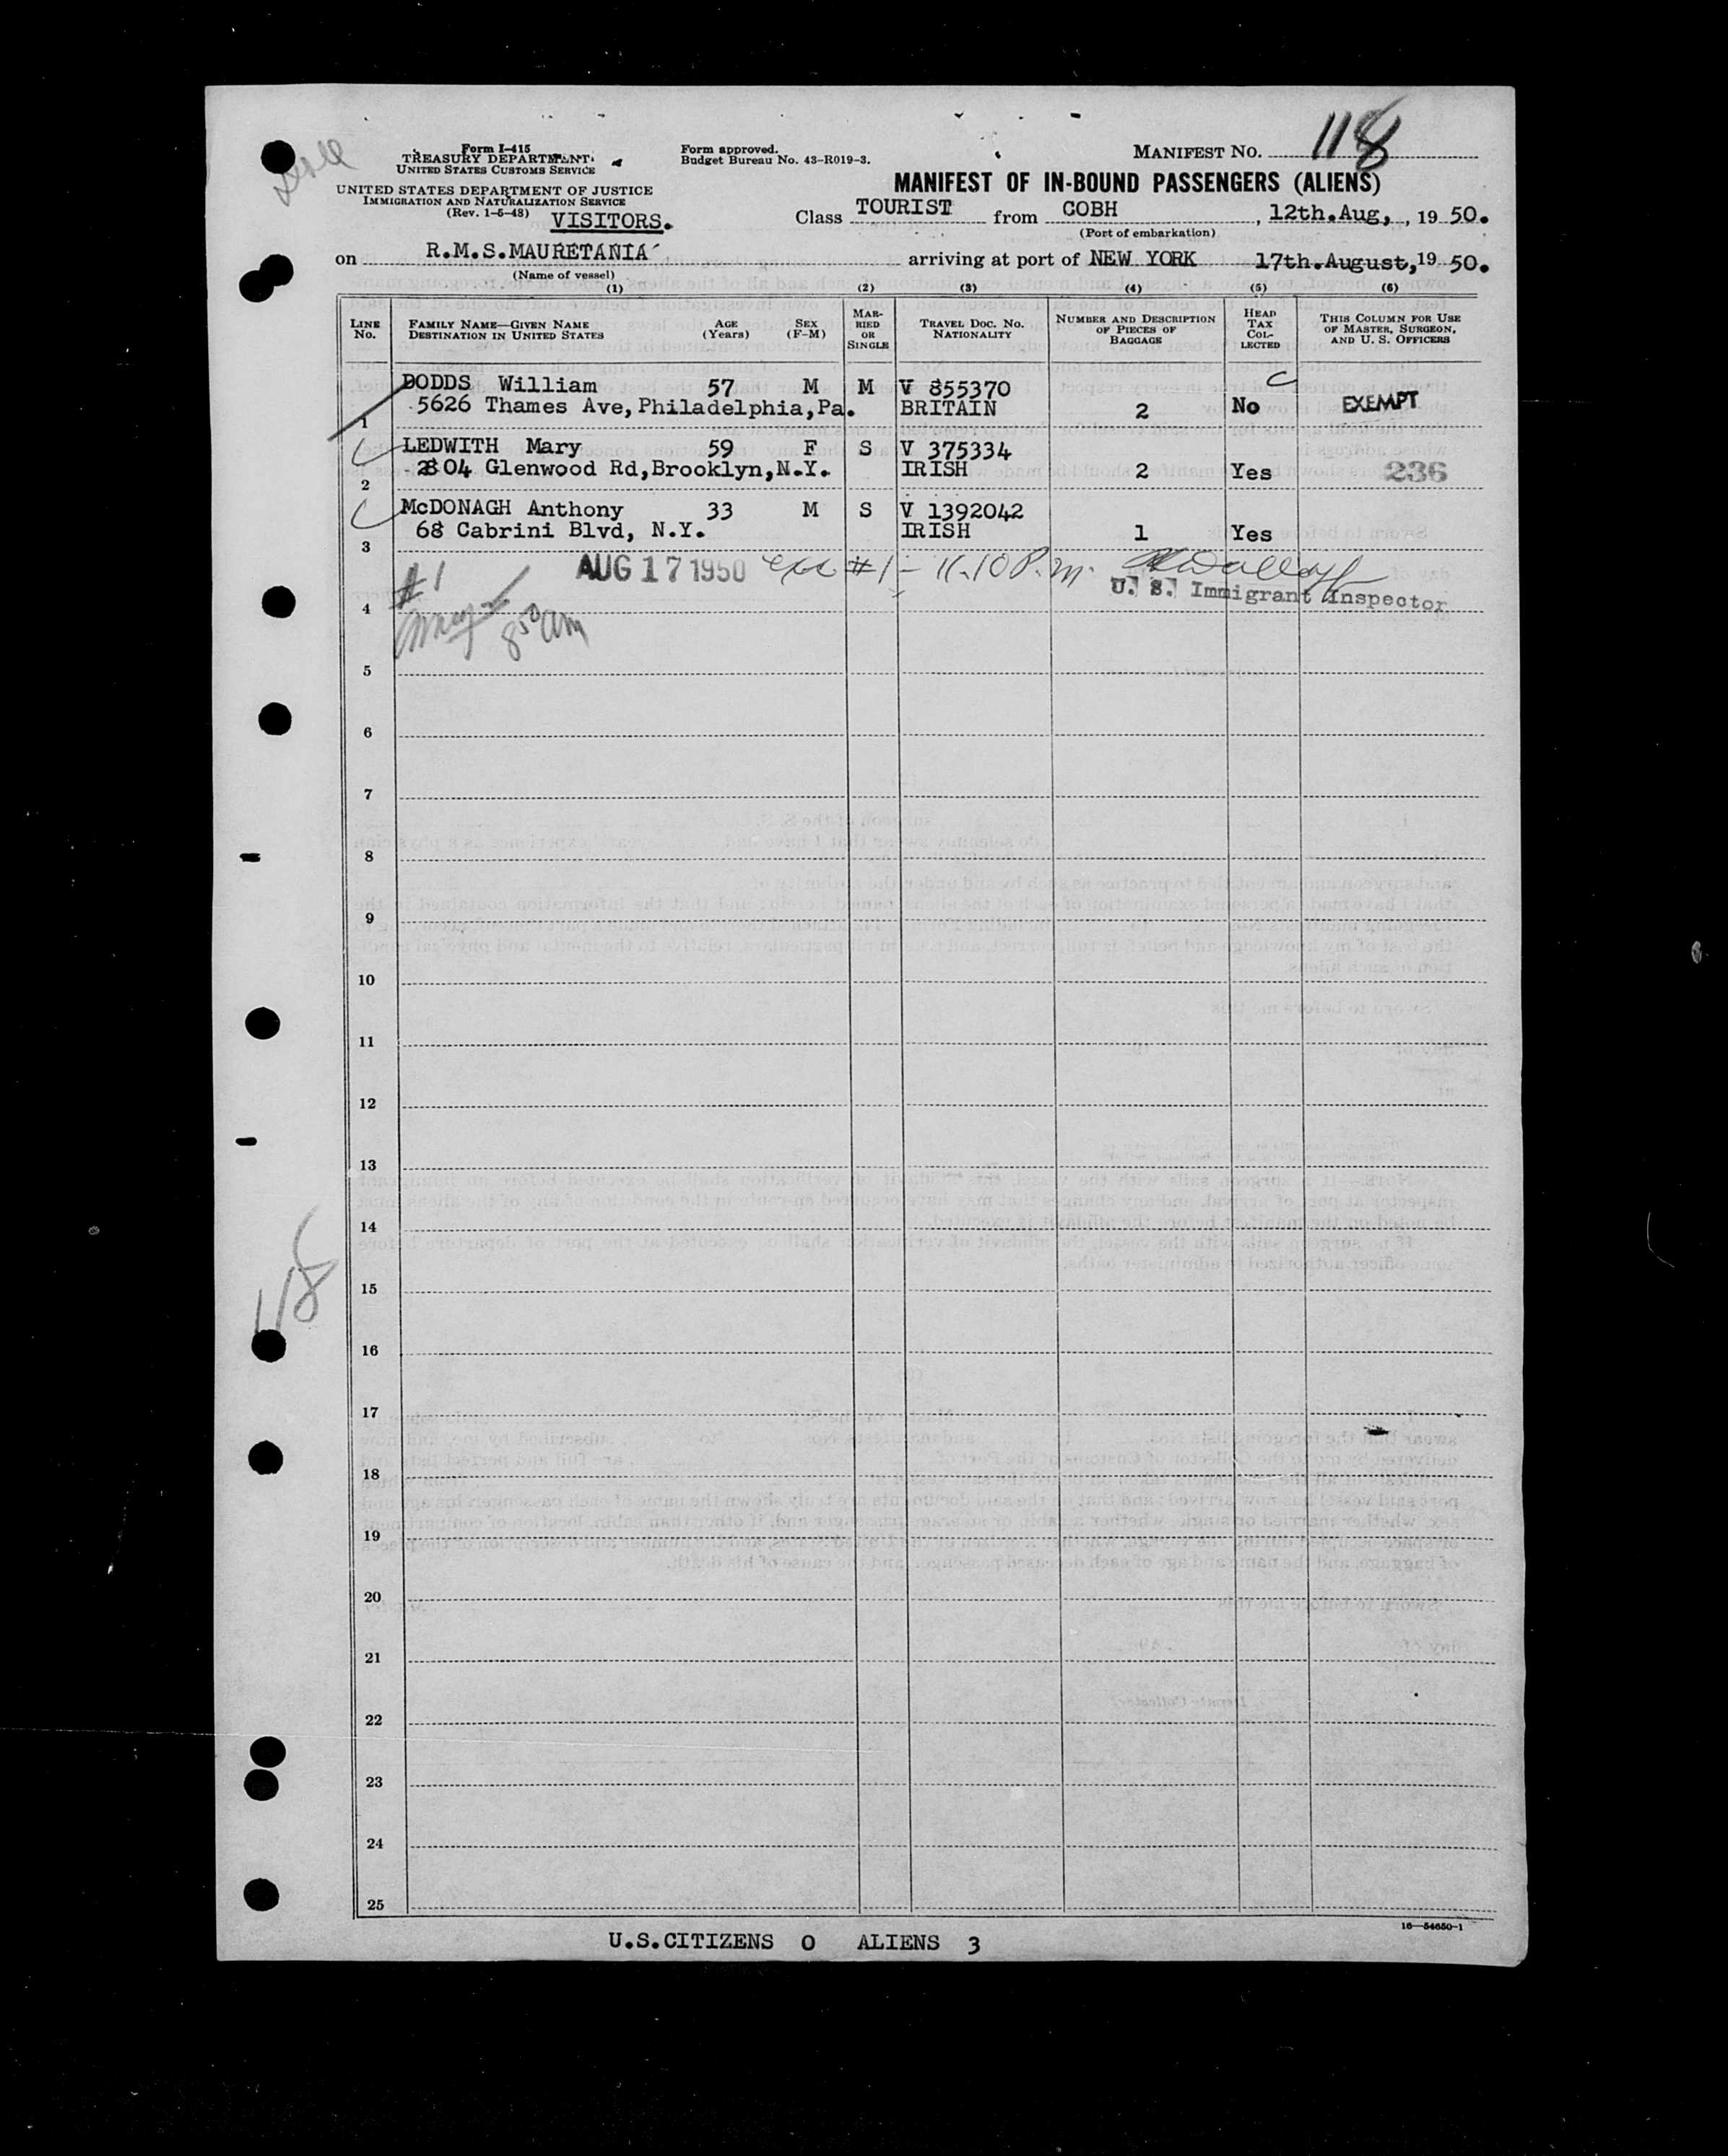 Form I-415
TREASURY DEPARTMENT
UNITED STATES CUSTOMS SERVICE
UNITED STATES DEPARTMENT OF JUSTICE
IMMIGRATION AND NATURALIZATION SERVICE
(Rev. 1-5-48) VISITORS.
Form approved.
Budget Bureau No. 43-R019-3.
MANIFEST NO. 118
MANIFEST OF IN-BOUND PASSENGERS (ALIENS)
Class TOURIST from COBH, 12th.Aug, , 19 50.
(Port of embarkation)
on R.M.S.MAURETANIA arriving at port of NEW YORK 17th.August, 19 50.
(Name of vessel)
(1) (2) (3) (4) (5) (6)
LINE No. FAMILY NAME—GIVEN NAME DESTINATION IN UNITED STATES AGE (Years) SEX (F-M) MARRIED OR SINGLE TRAVEL DOC. NO. NATIONALITY NUMBER AND DESCRIPTION OF PIECES OF BAGGAGE HEAD TAX COLLECTED THIS COLUMN FOR USE OF MASTER, SURGEON, AND U. S. OFFICERS
DODDS William 57 M M V 855370 C
5626 Thames Ave, Philadelphia, Pa. BRITAIN 2 No EXEMPT
1
LEDWITH Mary 59 F S V 375334
2804 Glenwood Rd, Brooklyn, N.Y. IRISH 2 Yes 236
2
McDONAGH Anthony 33 M S V 1392042
68 Cabrini Blvd, N.Y. IRISH 1 Yes
3
#1 AUG 17 1950 #1 - 11.10 P.m.
U. S. Immigrant Inspector
4
8 50 am
5
6
7
8
9
10
11
12
13
14
118
15
16
17
18
19
20
21
22
23
24
25
16—54650-1
U.S.CITIZENS 0 ALIENS 3